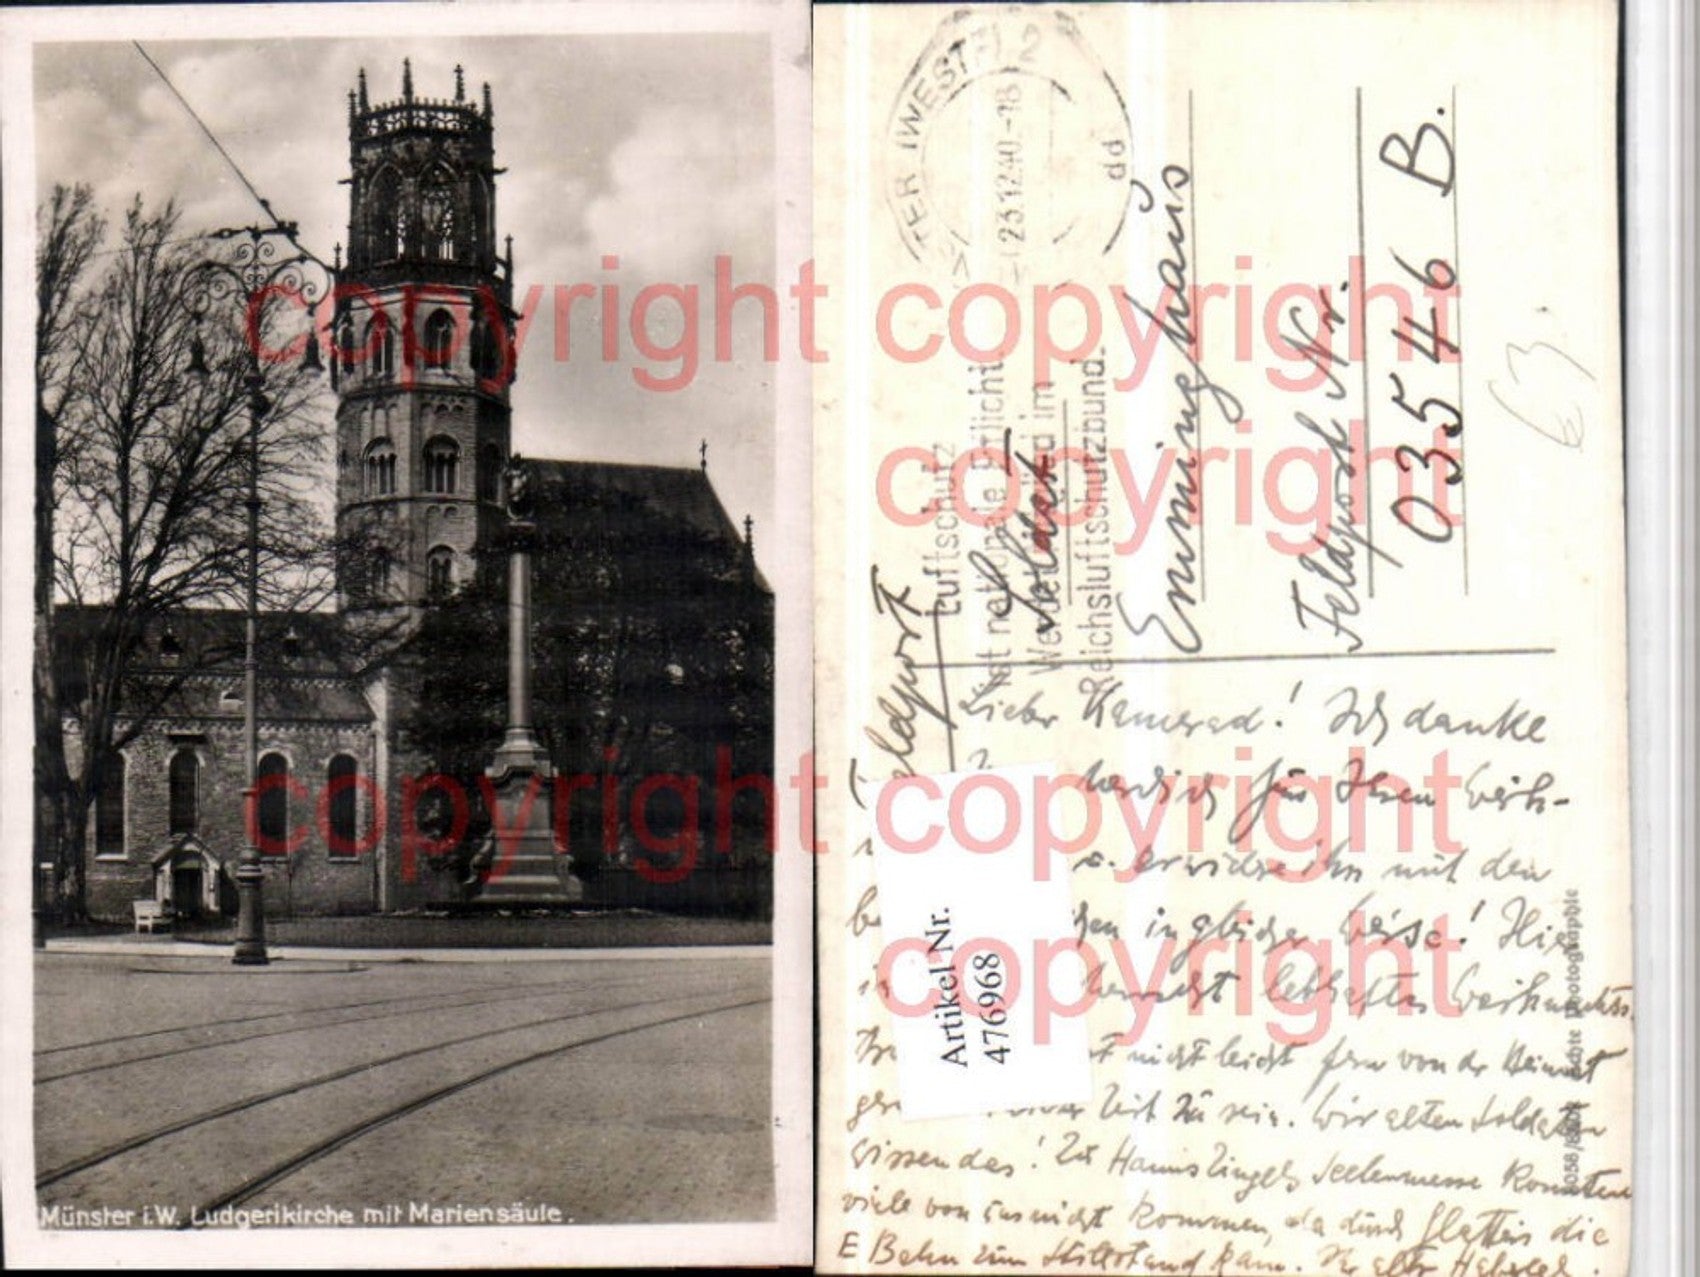 Münster i.W. Ludgerikirche mit Mariensäule.
copyright copyright
copyright
copyright copyright
copyright
Feldpost
TER (WESTF) 2
23.12.40.-18
dd
Luftschutz
ist nationale Pflicht.
Werdet Mitglied im
Reichsluftschutzbund.
Soldat
Emminghaus
Feldpost Nr.
03546 B.
63.
Artikel Nr.
476968
Lieber Kamerad! Ich danke
herzlich für Ihren Weih-
erwidre ihn mit den
in gleicher Weise! Hier
herrscht lebhaftes Weihnachts
nicht leicht fern von der Heimat
Zeit zu sein. Wir alten Soldaten
wissen das! Zu Hanns Seelenmesse konnten
viele von uns nicht kommen, da durch die
E Bahn zum Stillstand kam. Ihr alter
Echte Photographie